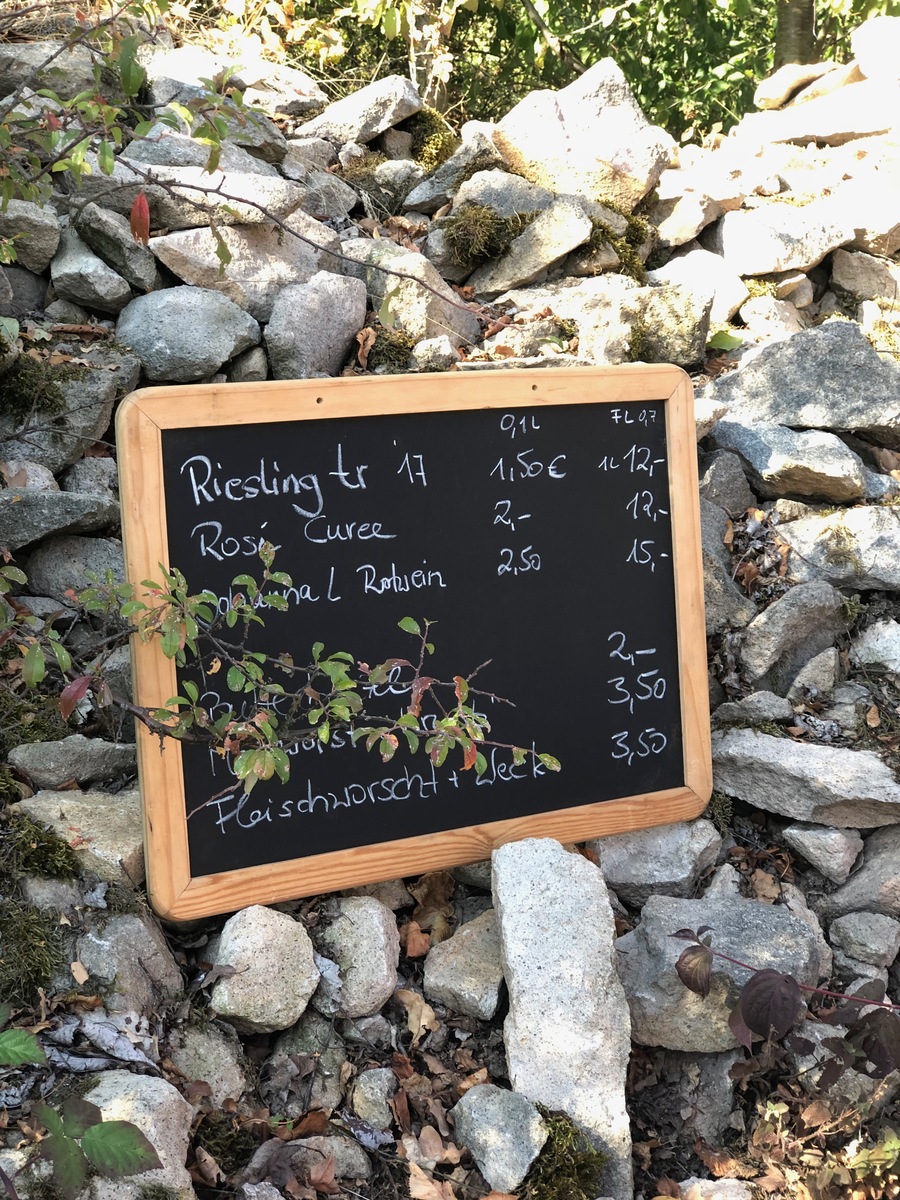 0,1L FL 0,7
Riesling tr '17 1,50€ 1L 12,-
Rosé Curee 2,- 12,-
Johanna L Rotwein 2,50 15,-
2,-
3,50
Fleischworscht + Weck 3,50